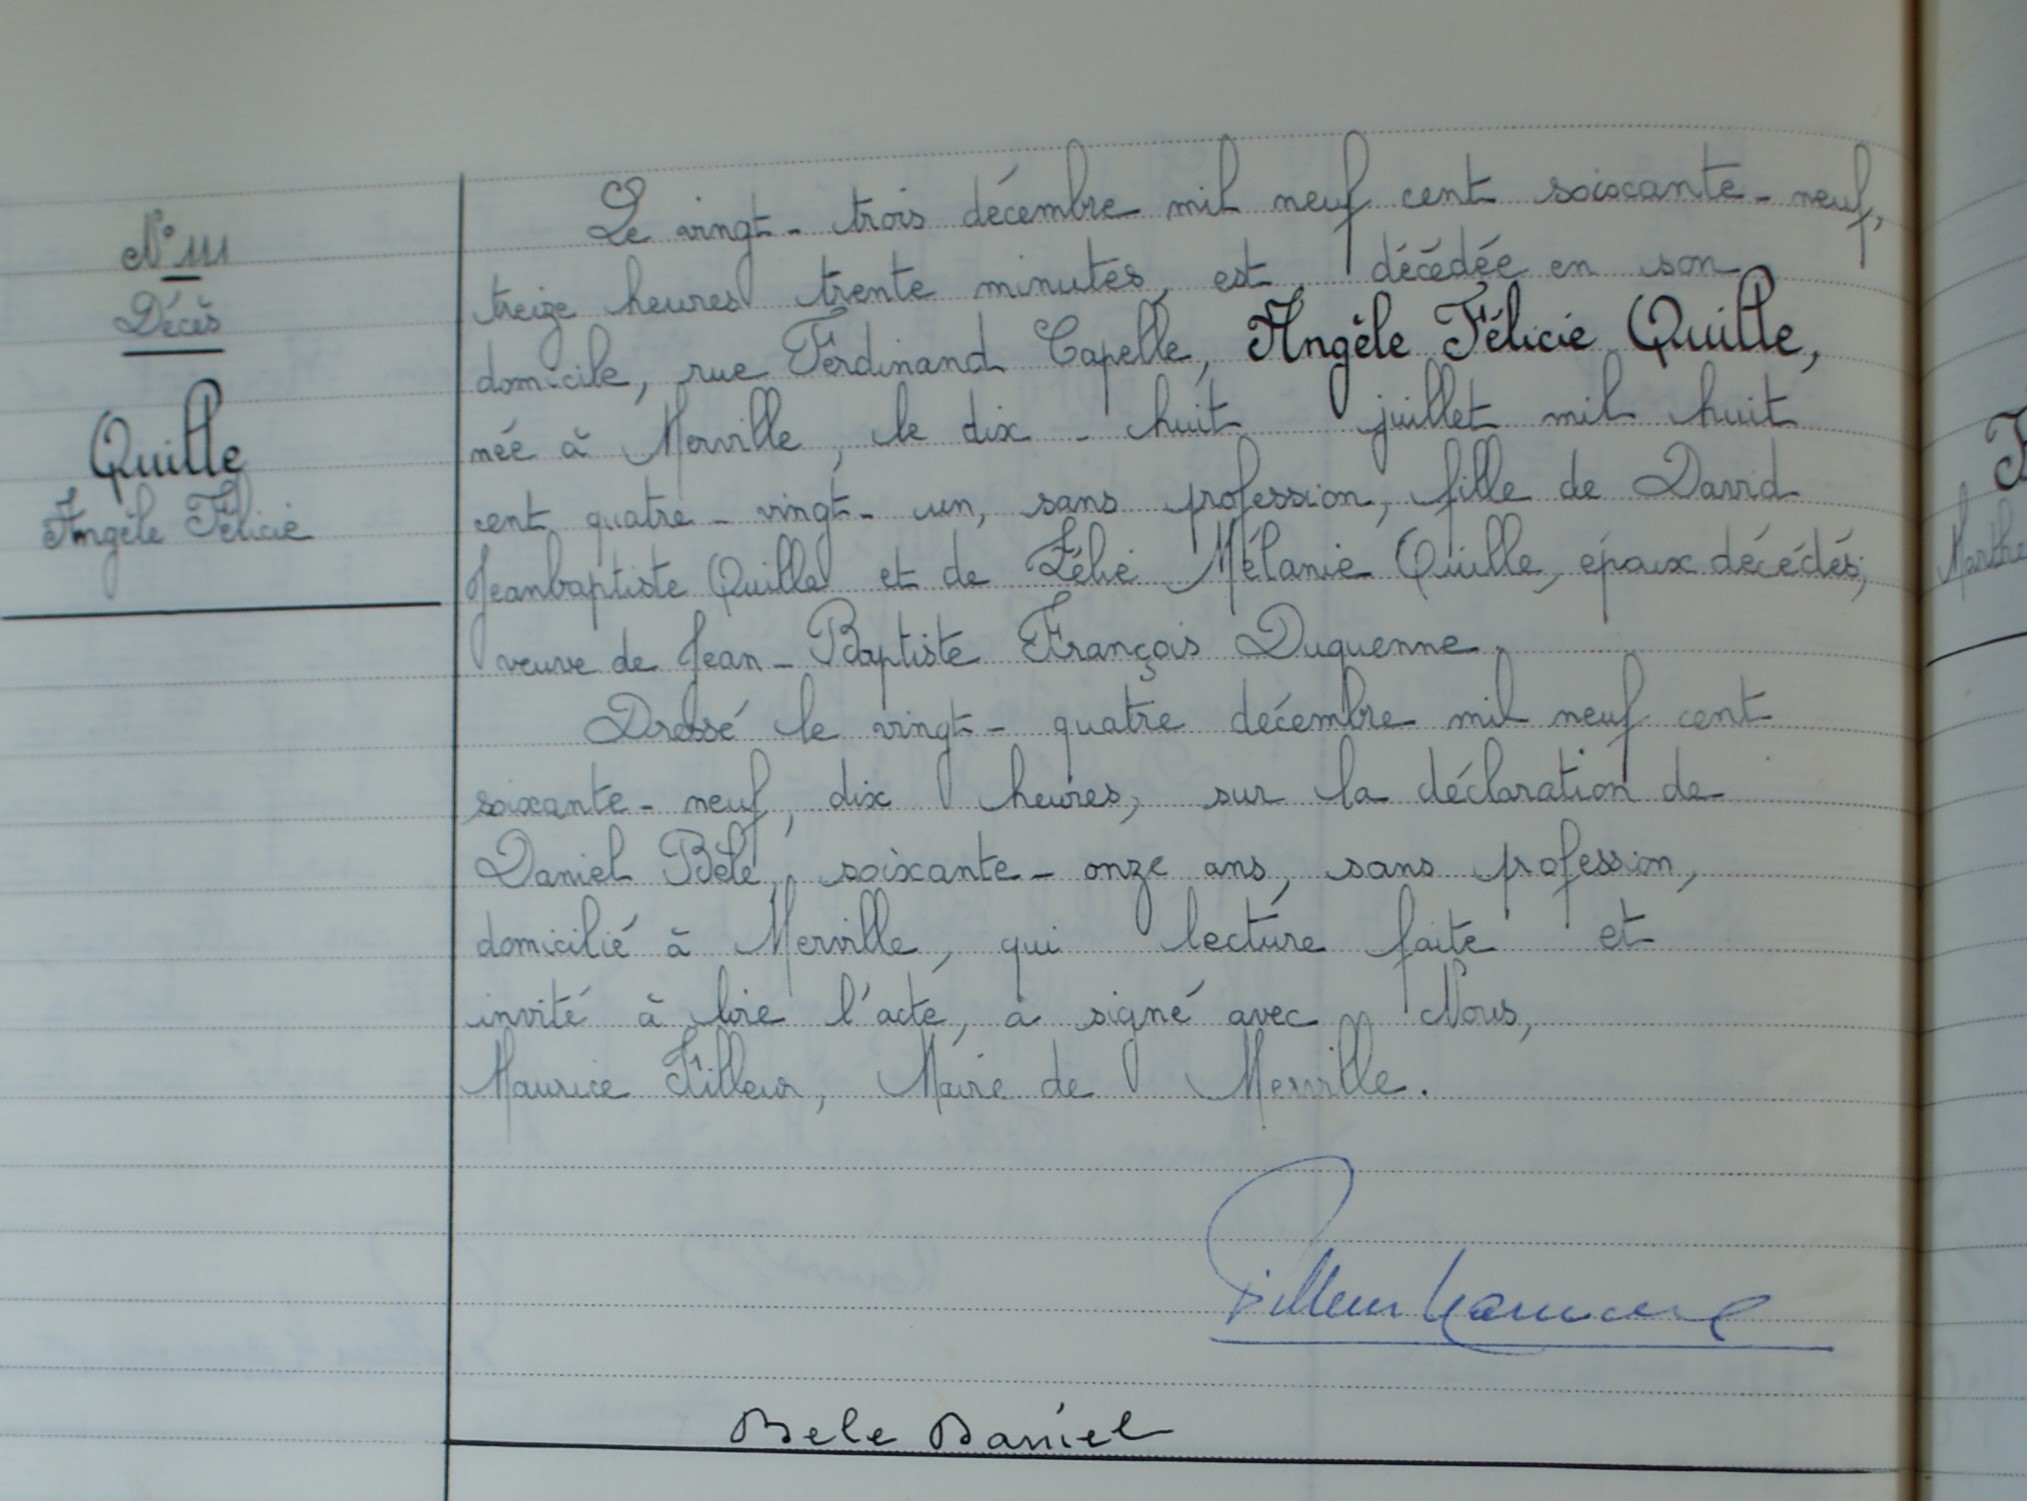 N° 111
Décès
Quille
Angèle Félicie
Le vingt-trois décembre mil neuf cent soixante-neuf,
treize heures trente minutes, est décédée en son
domicile, rue Ferdinand Capelle, Angèle Félicie Quille,
née à Merville, le dix-huit juillet mil huit
cent quatre-vingt-un, sans profession, fille de David
Jeanbaptiste Quille et de Zélie Mélanie Quille, époux décédés;
veuve de Jean-Baptiste François Duquenne.
Dressé le vingt-quatre décembre mil neuf cent
soixante-neuf, dix heures, sur la déclaration de
Daniel Bèle, soixante-onze ans, sans profession,
domicilié à Merville, qui lecture faite et
invité à lire l'acte, a signé avec Nous,
Maurice Filleur, Maire de Merville.
Filleur Maurice
Bele Daniel
Marthe